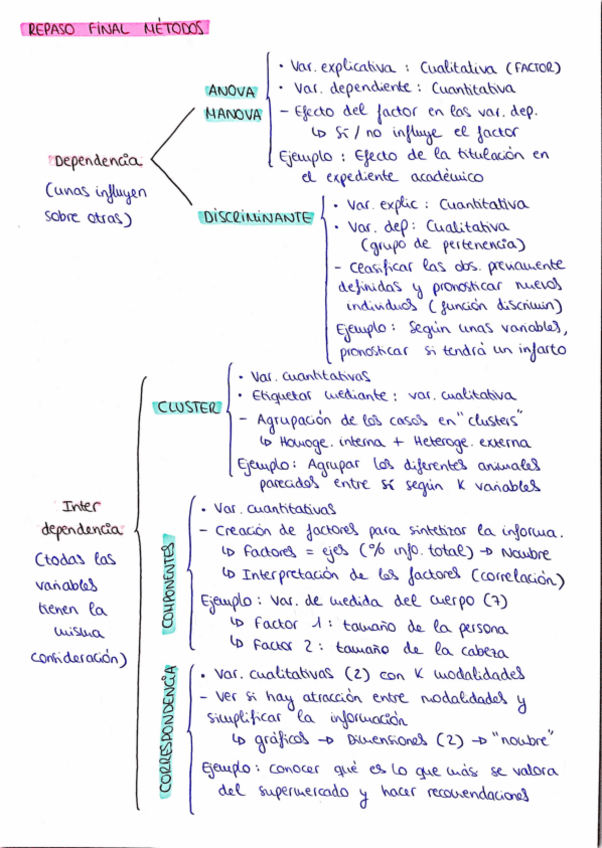 REPASO FINAL MÉTODOS
Dependencia
(unas influyen
sobre otras)
ANOVA
MANOVA
• Var. explicativa : Cualitativa (FACTOR)
• Var. dependiente : Cuantitativa
- Efecto del factor en las var. dep.
↳ Sí / no influye el factor
Ejemplo : Efecto de la titulación en
el expediente académico
DISCRIMINANTE
• Var. explic : Cuantitativa
• Var. dep : Cualitativa
(grupo de pertenencia)
- Clasificar las obs. previamente
definidas y pronosticar nuevos
individuos (función discrimin)
Ejemplo : Según unas variables,
pronosticar si tendrá un infarto
Inter
dependencia
(todas las
variables
tienen la
misma
consideración)
CLUSTER
• Var. cuantitativas
• Etiquetar mediante : var. cualitativa
- Agrupación de los casos en "clusters"
↳ Homoge. interna + Heteroge. externa
Ejemplo : Agrupar los diferentes animales
parecidos entre sí según K variables
COMPONENTES
• Var. cuantitativas
- Creación de factores para sintetizar la informa.
↳ Factores = ejes (% info. total) → Nombre
↳ Interpretación de los factores (correlación)
Ejemplo : Var. de medida del cuerpo (7)
↳ Factor 1 : tamaño de la persona
↳ Factor 2 : tamaño de la cabeza
CORRESPONDENCIA
• Var. cualitativas (2) con K modalidades
- Ver si hay atracción entre modalidades y
simplificar la información
↳ gráficos → Dimensiones (2) → "nombre"
Ejemplo : conocer qué es lo que más se valora
del supermercado y hacer recomendaciones